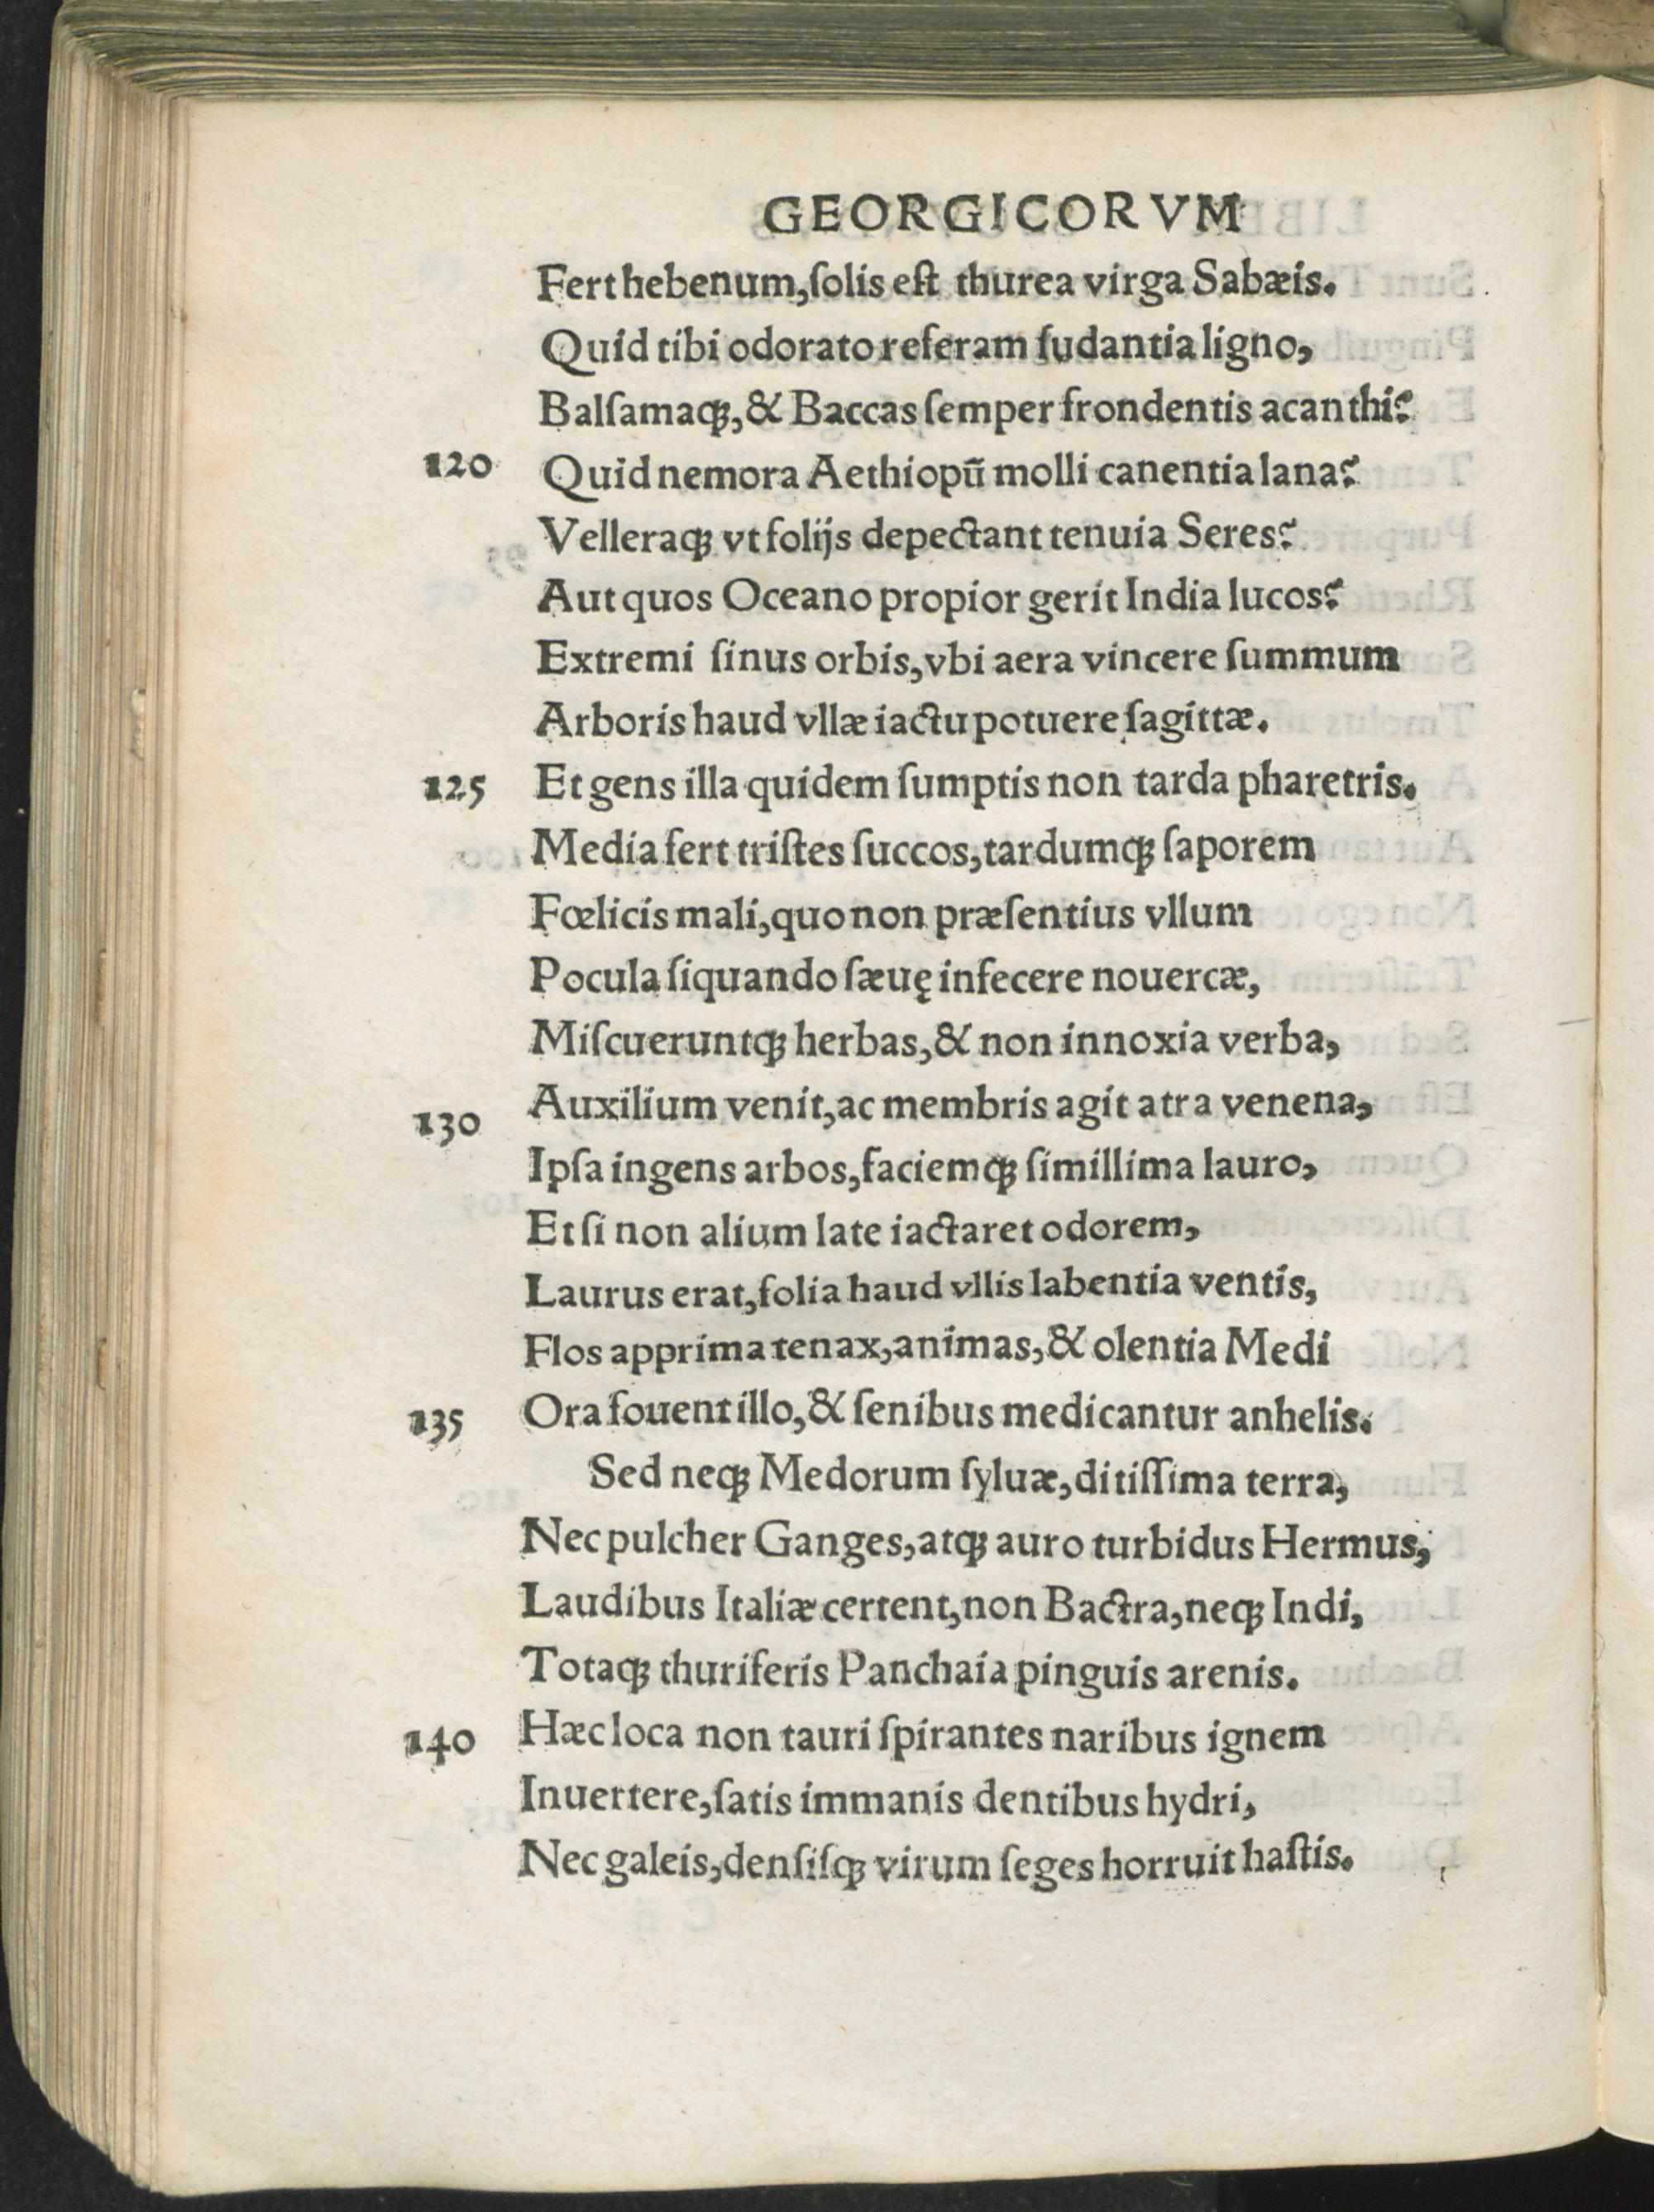 GEORGICORVM
Fert hebenum, ſolis eſt thurea virga Sabæis.
Quid tibi odorato referam ſudantia ligno,
Balſamaqꝫ, & Baccas ſemper frondentis acanthi?
120 Quid nemora Aethiopū molli canentia lana?
Velleraqꝫ vt folijs depectant tenuia Seres?
Aut quos Oceano propior gerit India lucos?
Extremi ſinus orbis, vbi aera vincere ſummum
Arboris haud vllæ iactu potuere ſagittæ.
125 Et gens illa quidem ſumptis non tarda pharetris.
Media fert triſtes ſuccos, tardumqꝫ ſaporem
Fœlicis mali, quo non præſentius vllum
Pocula ſiquando ſæuę infecere nouercæ,
Miſcueruntqꝫ herbas, & non innoxia verba,
130 Auxilium venit, ac membris agit atra venena,
Ipſa ingens arbos, faciemqꝫ ſimillima lauro,
Et ſi non alium late iactaret odorem,
Laurus erat, folia haud vllis labentia ventis,
Flos apprima tenax, animas, & olentia Medi
135 Ora fouent illo, & ſenibus medicantur anhelis.
Sed neqꝫ Medorum ſyluæ, ditiſſima terra,
Nec pulcher Ganges, atqꝫ auro turbidus Hermus,
Laudibus Italiæ certent, non Bactra, neqꝫ Indi,
Totaqꝫ thuriferis Panchaia pinguis arenis.
140 Hæc loca non tauri ſpirantes naribus ignem
Inuertere, ſatis immanis dentibus hydri,
Nec galeis, denſiſqꝫ virum ſeges horruit haſtis.